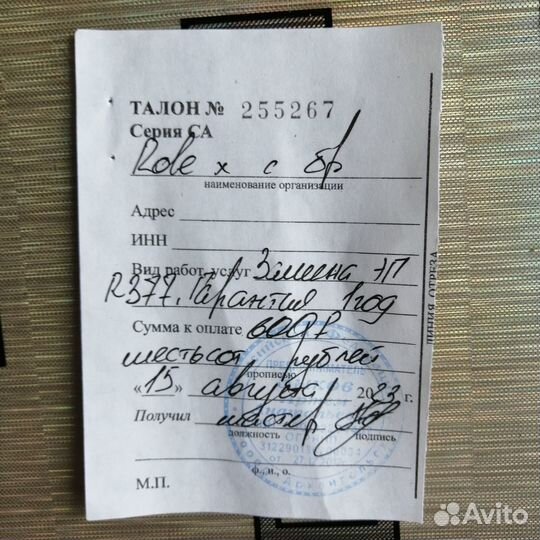 ТАЛОН № 255267
Серия СА
Rolex с бр
наименование организации
Адрес
ИНН
Вид работ, услуг Замена ЭП
R377. Гарантия 1 год
Сумма к оплате 600 ₽
шестьсот рублей
прописью
«15» августа 2023 г.
Получил мастер
должность подпись
ф., и., о.
М.П.
ЛИНИЯ ОТРЕЗА
ПРЕДПРИНИМАТЕЛЬ
Avito